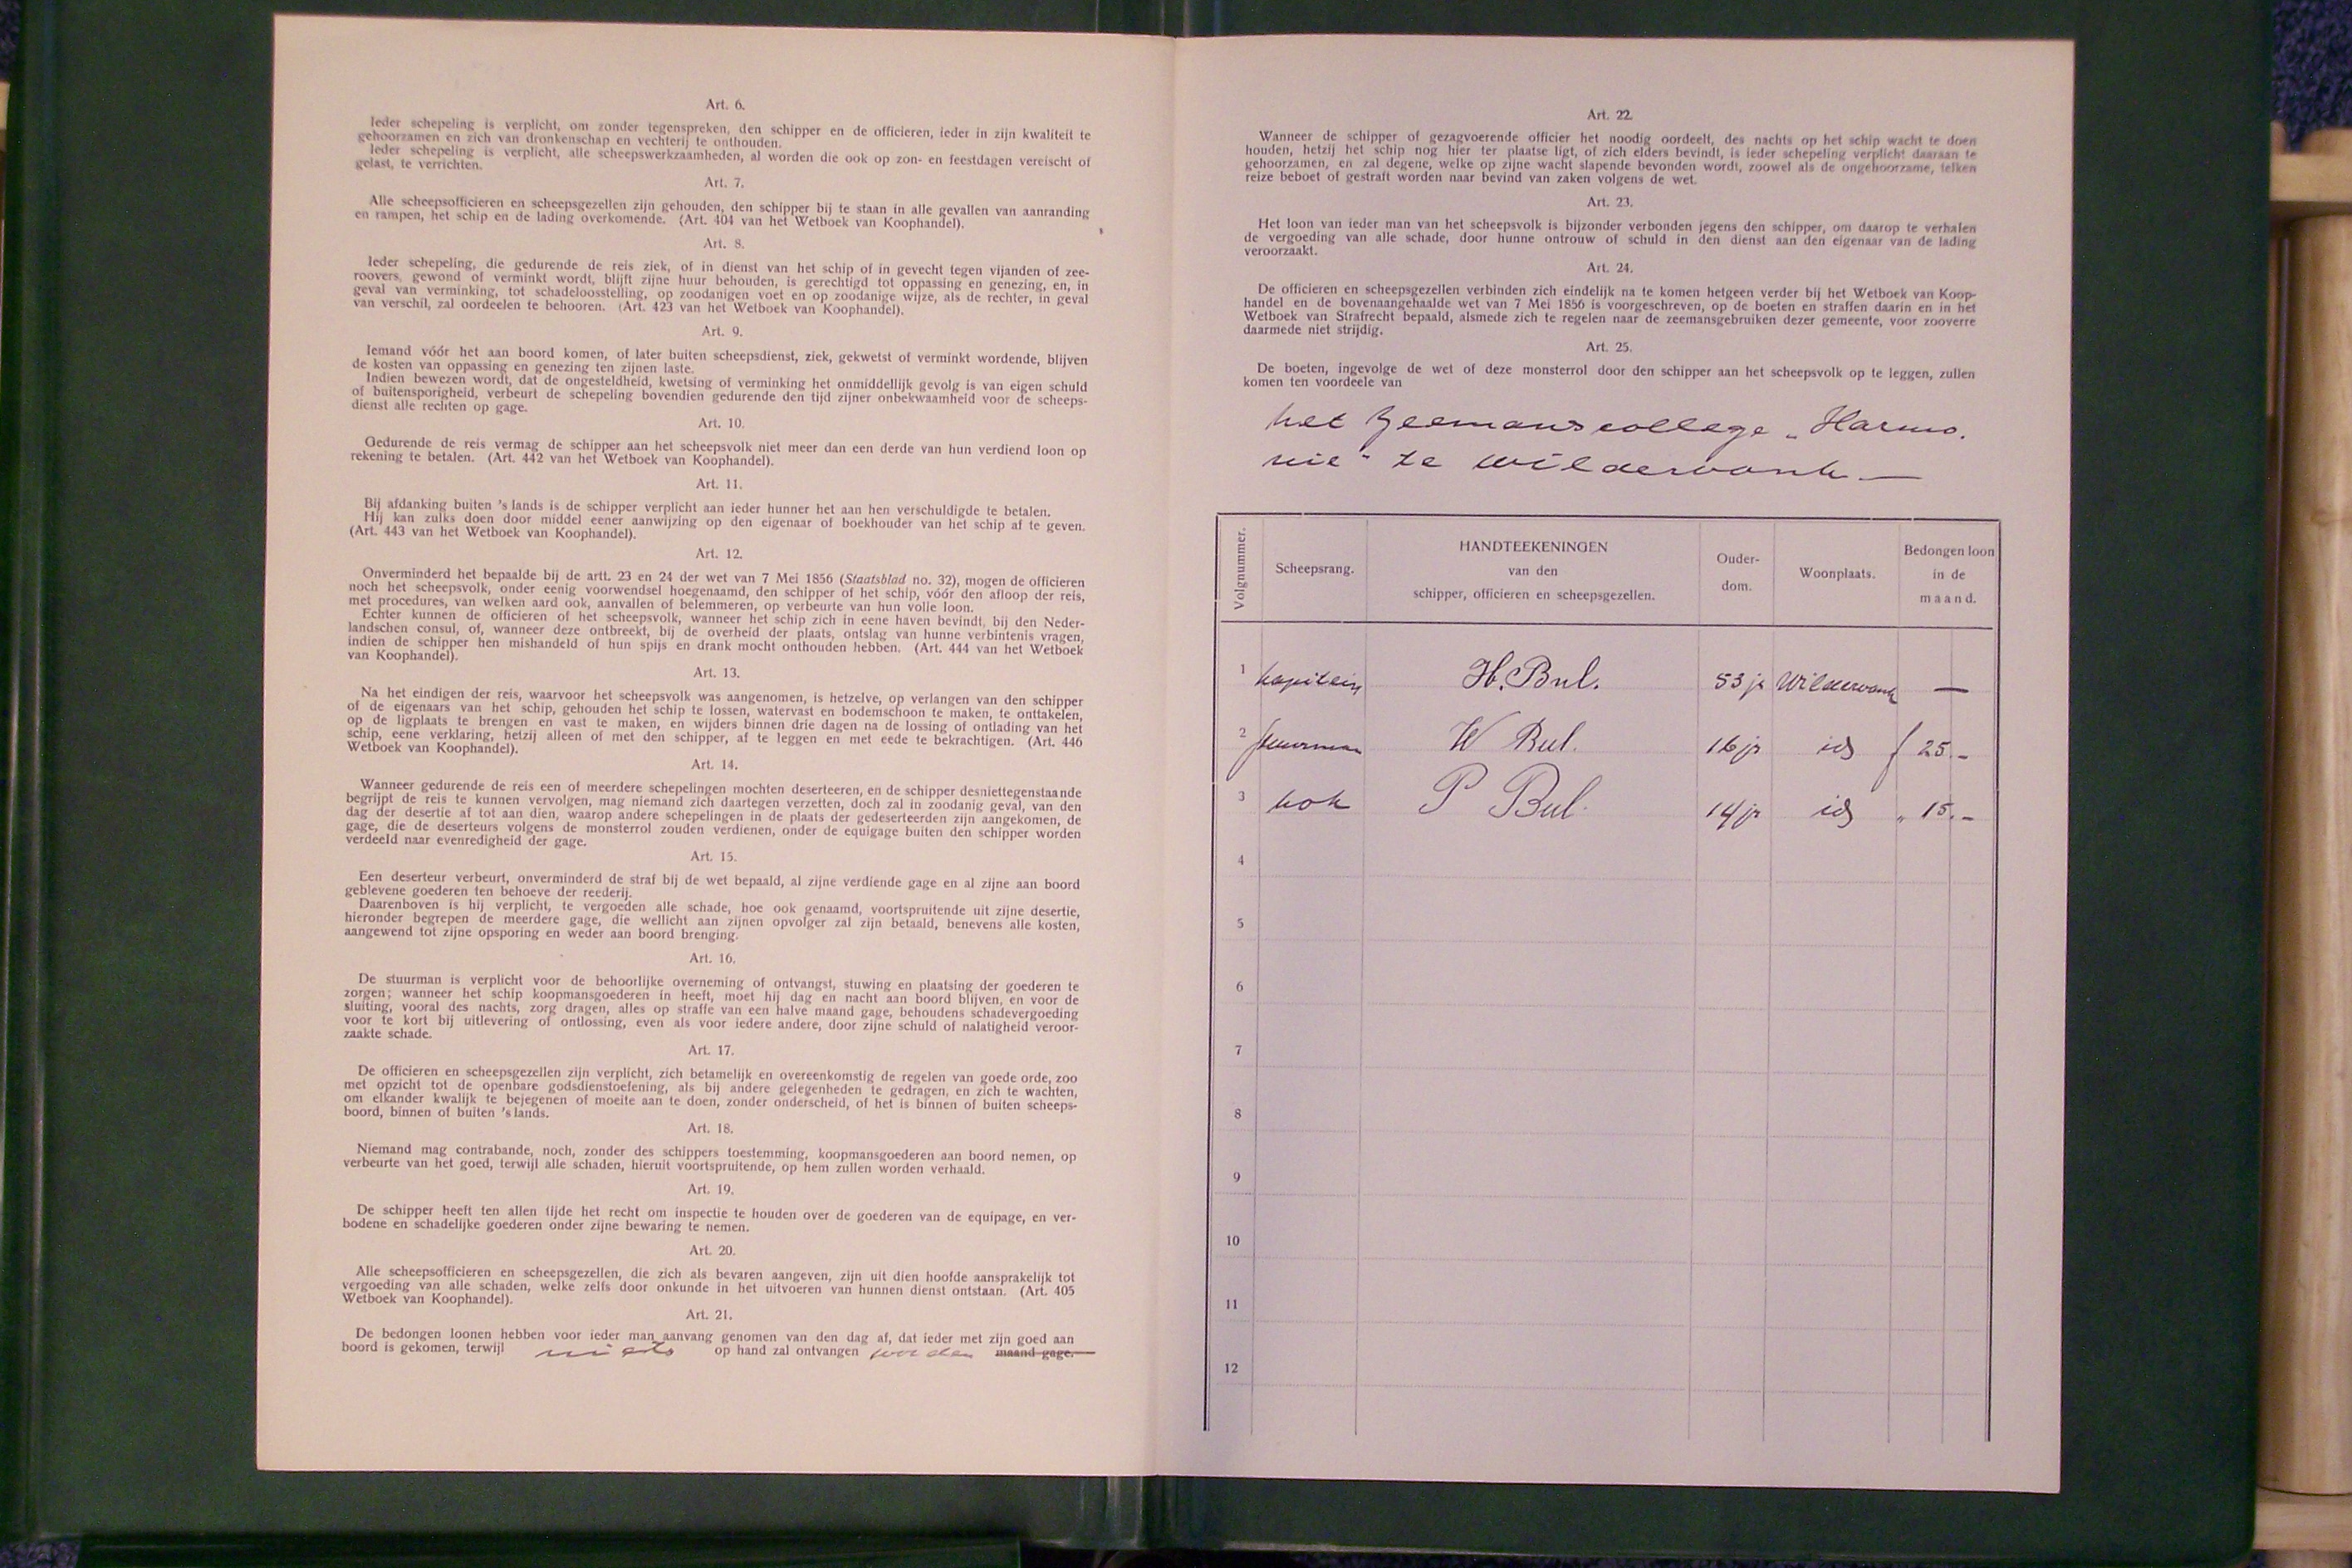 Art. 6.
Ieder schepeling is verplicht, om zonder tegenspreken, den schipper en de officieren, ieder in zijn kwaliteit te
gehoorzamen en zich van dronkenschap en vechterij te onthouden.
Ieder schepeling is verplicht, alle scheepswerkzaamheden, al worden die ook op zon- en feestdagen vereischt of
gelast, te verrichten.
Art. 7.
Alle scheepsofficieren en scheepsgezellen zijn gehouden, den schipper bij te staan in alle gevallen van aanranding
en rampen, het schip en de lading overkomende. (Art. 404 van het Wetboek van Koophandel).
Art. 8.
Ieder schepeling, die gedurende de reis ziek, of in dienst van het schip of in gevecht tegen vijanden of zee-
roovers, gewond of verminkt wordt, blijft zijne huur behouden, is gerechtigd tot oppassing en genezing, en, in
geval van verminking, tot schadeloosstelling, op zoodanigen voet en op zoodanige wijze, als de rechter, in geval
van verschil, zal oordeelen te behooren. (Art. 423 van het Wetboek van Koophandel).
Art. 9.
Iemand vóór het aan boord komen, of later buiten scheepsdienst, ziek, gekwetst of verminkt wordende, blijven
de kosten van oppassing en genezing ten zijnen laste.
Indien bewezen wordt, dat de ongesteldheid, kwetsing of verminking het onmiddellijk gevolg is van eigen schuld
of buitensporigheid, verbeurt de schepeling bovendien gedurende den tijd zijner onbekwaamheid voor de scheeps-
dienst alle rechten op gage.
Art. 10.
Gedurende de reis vermag de schipper aan het scheepsvolk niet meer dan een derde van hun verdiend loon op
rekening te betalen. (Art. 442 van het Wetboek van Koophandel).
Art. 11.
Bij afdanking buiten 's lands is de schipper verplicht aan ieder hunner het aan hen verschuldigde te betalen.
Hij kan zulks doen door middel eener aanwijzing op den eigenaar of boekhouder van het schip af te geven.
(Art. 443 van het Wetboek van Koophandel).
Art. 12.
Onverminderd het bepaalde bij de artt. 23 en 24 der wet van 7 Mei 1856 (Staatsblad no. 32), mogen de officieren
noch het scheepsvolk, onder eenig voorwendsel hoegenaamd, den schipper of het schip, vóór den afloop der reis,
met procedures, van welken aard ook, aanvallen of belemmeren, op verbeurte van hun volle loon.
Echter kunnen de officieren of het scheepsvolk, wanneer het schip zich in eene haven bevindt, bij den Neder-
landschen consul, of, wanneer deze ontbreekt, bij de overheid der plaats, ontslag van hunne verbintenis vragen,
indien de schipper hen mishandeld of hun spijs en drank mocht onthouden hebben. (Art. 444 van het Wetboek
van Koophandel).
Art. 13.
Na het eindigen der reis, waarvoor het scheepsvolk was aangenomen, is hetzelve, op verlangen van den schipper
of de eigenaars van het schip, gehouden het schip te lossen, watervast en bodemschoon te maken, te onttakelen,
op de ligplaats te brengen en vast te maken, en wijders binnen drie dagen na de lossing of ontlading van het
schip, eene verklaring, hetzij alleen of met den schipper, af te leggen en met eede te bekrachtigen. (Art. 446
Wetboek van Koophandel).
Art. 14.
Wanneer gedurende de reis een of meerdere schepelingen mochten deserteeren, en de schipper desniettegenstaande
begrijpt de reis te kunnen vervolgen, mag niemand zich daartegen verzetten, doch zal in zoodanig geval, van den
dag der desertie af tot aan dien, waarop andere schepelingen in de plaats der gedeserteerden zijn aangekomen, de
gage, die de deserteurs volgens de monsterrol zouden verdienen, onder de equigage buiten den schipper worden
verdeeld naar evenredigheid der gage.
Art. 15.
Een deserteur verbeurt, onverminderd de straf bij de wet bepaald, al zijne verdiende gage en al zijne aan boord
geblevene goederen ten behoeve der reederij.
Daarenboven is hij verplicht, te vergoeden alle schade, hoe ook genaamd, voortspruitende uit zijne desertie,
hieronder begrepen de meerdere gage, die wellicht aan zijnen opvolger zal zijn betaald, benevens alle kosten,
aangewend tot zijne opsporing en weder aan boord brenging.
Art. 16.
De stuurman is verplicht voor de behoorlijke overneming of ontvangst, stuwing en plaatsing der goederen te
zorgen; wanneer het schip koopmansgoederen in heeft, moet hij dag en nacht aan boord blijven, en voor de
sluiting, vooral des nachts, zorg dragen, alles op straffe van een halve maand gage, behoudens schadevergoeding
voor te kort bij uitlevering of ontlossing, even als voor iedere andere, door zijne schuld of nalatigheid veroor-
zaakte schade.
Art. 17.
De officieren en scheepsgezellen zijn verplicht, zich betamelijk en overeenkomstig de regelen van goede orde, zoo
met opzicht tot de openbare godsdienstoefening, als bij andere gelegenheden te gedragen, en zich te wachten,
om elkander kwalijk te bejegenen of moeite aan te doen, zonder onderscheid, of het is binnen of buiten scheeps-
boord, binnen of buiten 's lands.
Art. 18.
Niemand mag contrabande, noch, zonder des schippers toestemming, koopmansgoederen aan boord nemen, op
verbeurte van het goed, terwijl alle schaden, hieruit voortspruitende, op hem zullen worden verhaald.
Art. 19.
De schipper heeft ten allen tijde het recht om inspectie te houden over de goederen van de equipage, en ver-
bodene en schadelijke goederen onder zijne bewaring te nemen.
Art. 20.
Alle scheepsofficieren en scheepsgezellen, die zich als bevaren aangeven, zijn uit dien hoofde aansprakelijk tot
vergoeding van alle schaden, welke zelfs door onkunde in het uitvoeren van hunnen dienst ontstaan. (Art. 405
Wetboek van Koophandel).
Art. 21.
De bedongen loonen hebben voor ieder man aanvang genomen van den dag af, dat ieder met zijn goed aan
boord is gekomen, terwijl niets op hand zal ontvangen worden maand gage.
Art. 22.
Wanneer de schipper of gezagvoerende officier het noodig oordeelt, des nachts op het schip wacht te doen
houden, hetzij het schip nog hier ter plaatse ligt, of zich elders bevindt, is ieder schepeling verplicht daaraan te
gehoorzamen, en zal degene, welke op zijne wacht slapende bevonden wordt, zoowel als de ongehoorzame, telken
reize beboet of gestraft worden naar bevind van zaken volgens de wet.
Art. 23.
Het loon van ieder man van het scheepsvolk is bijzonder verbonden jegens den schipper, om daarop te verhalen
de vergoeding van alle schade, door hunne ontrouw of schuld in den dienst aan den eigenaar van de lading
veroorzaakt.
Art. 24.
De officieren en scheepsgezellen verbinden zich eindelijk na te komen hetgeen verder bij het Wetboek van Koop-
handel en de bovenaangehaalde wet van 7 Mei 1856 is voorgeschreven, op de boeten en straffen daarin en in het
Wetboek van Strafrecht bepaald, alsmede zich te regelen naar de zeemansgebruiken dezer gemeente, voor zooverre
daarmede niet strijdig.
Art. 25.
De boeten, ingevolge de wet of deze monsterrol door den schipper aan het scheepsvolk op te leggen, zullen
komen ten voordeele van
het Zeemanscollege „Harmo.
nie" te Wildervank —
Volgnummer.
Scheepsrang.
HANDTEEKENINGEN
van den
schipper, officieren en scheepsgezellen.
Ouder-
dom.
Woonplaats.
Bedongen loon
in de
maand.
1 kapitein H. Bul. 53 jr Wildervank —
2 stuurman W Bul. 16 jr id f 25.-
3 kok P Bul. 14 jr id „ 15.-
4
5
6
7
8
9
10
11
12